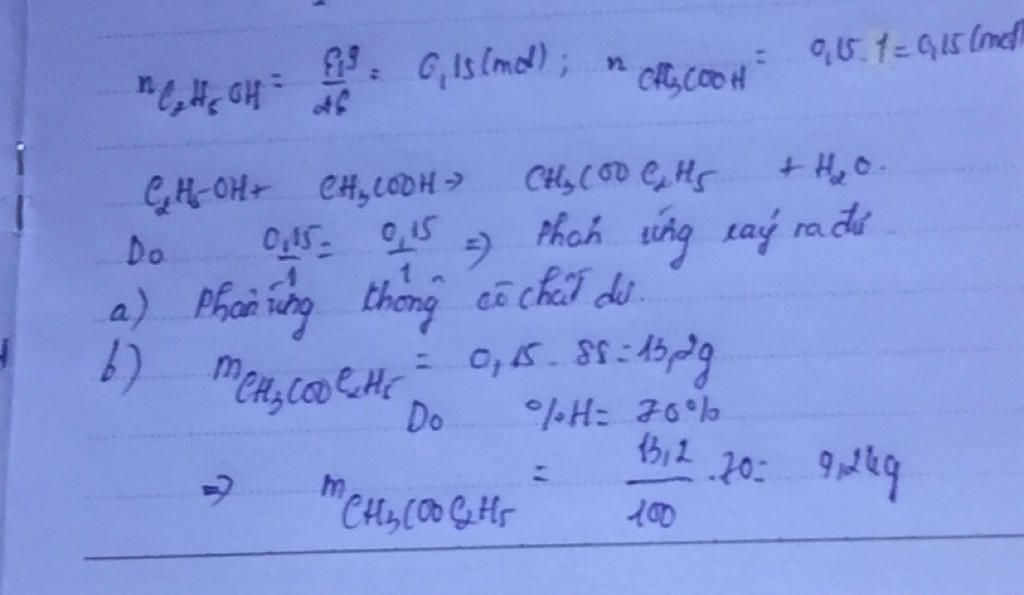 nC₂H₅OH = 6,9/46 = 0,15 (mol); nCH₃COOH = 0,15.1 = 0,15 (mol)
C₂H₅OH + CH₃COOH → CH₃COOC₂H₅ + H₂O.
Do 0,15/1 = 0,15/1 => Phản ứng xảy ra đủ
a) Phản ứng không có chất dư.
b) mCH₃COOC₂H₅ = 0,15 . 88 = 13,2g
Do %H = 70%
=> mCH₃COOC₂H₅ = 13,2/100 .70 = 9,24g